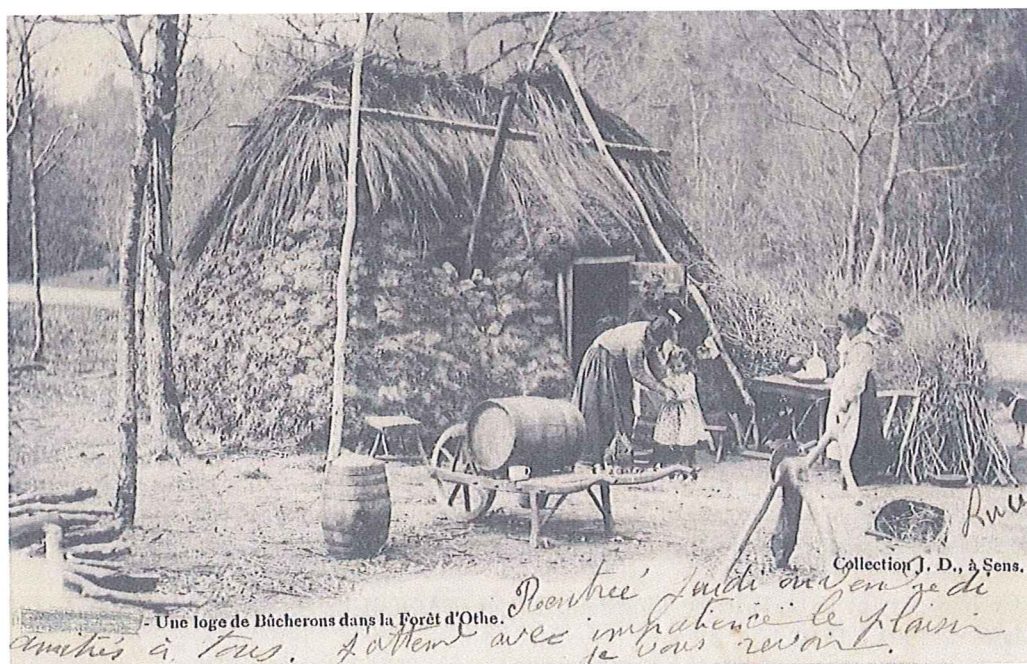 Collection J. D., à Sens.
- Une loge de Bûcherons dans la Forêt d'Othe.
Rentrée jeudi ou vendredi
amitiés à tous. J'attend avec impatience le plaisir
de vous revoir.